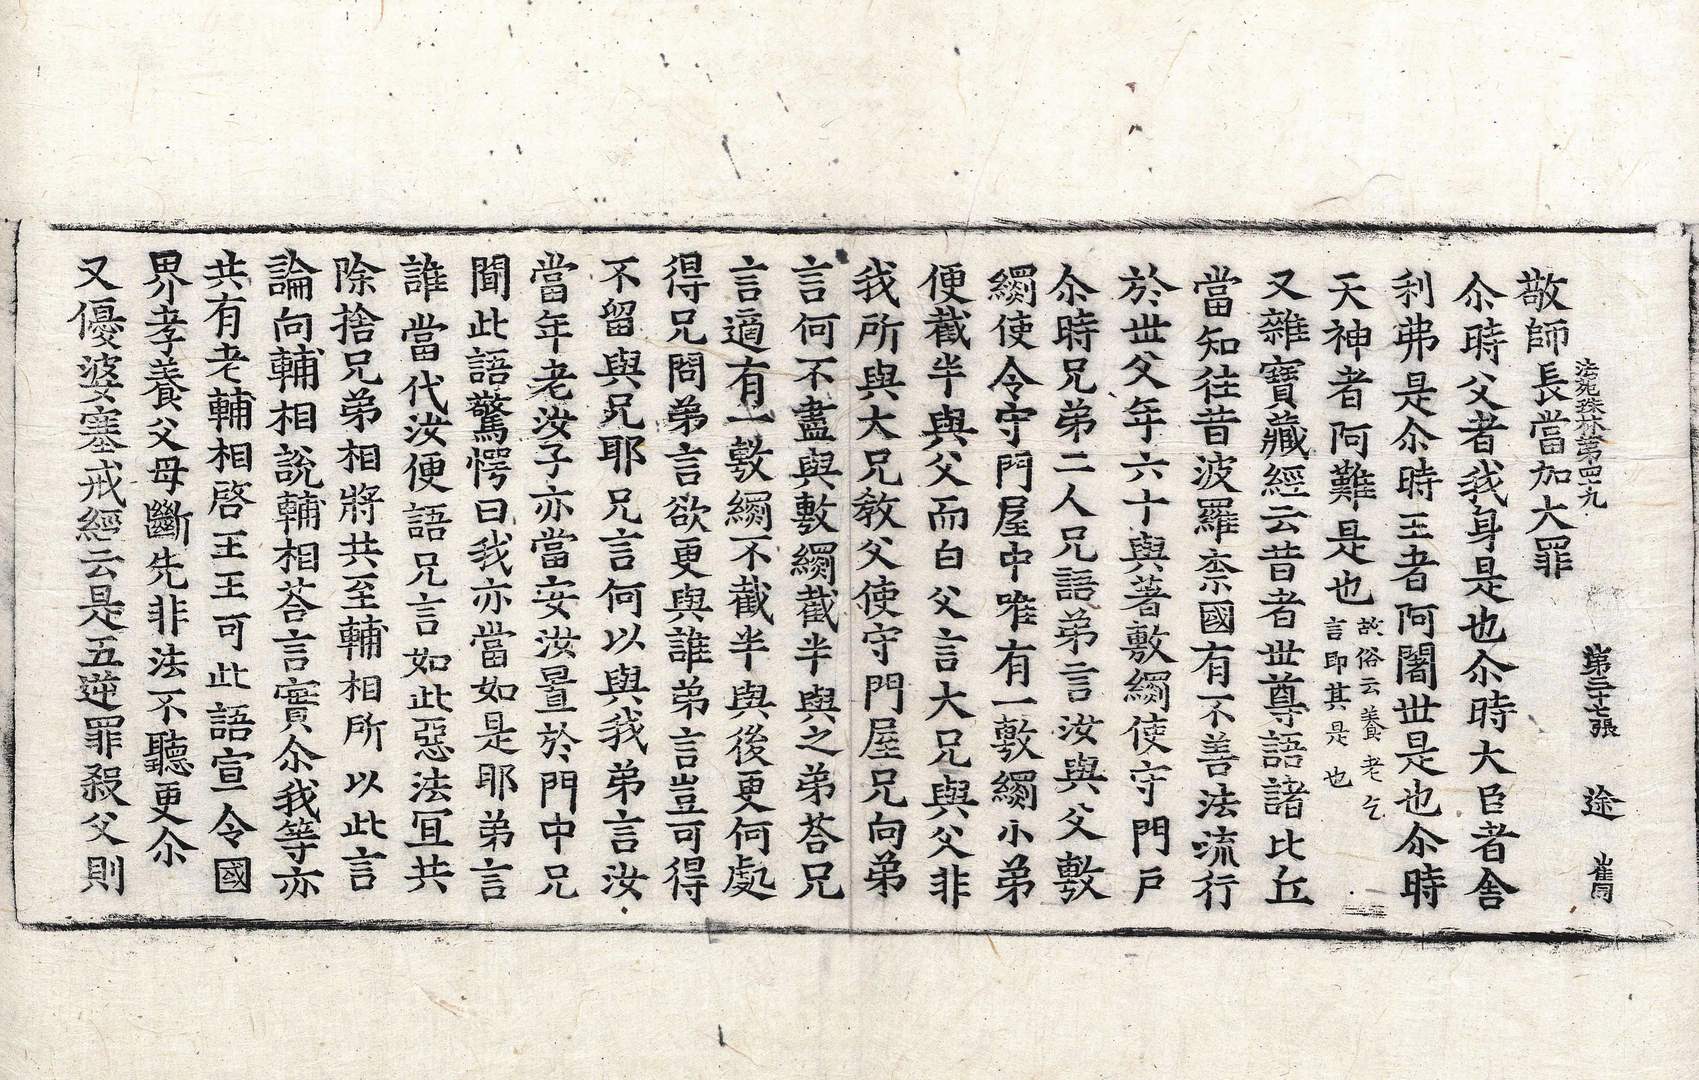 法苑珠林第四九　第二十七張　途　崔同
敬師長當加大罪
尒時父者我身是也尒時大臣者舍
利弗是尒時王者阿闍世是也尒時
天神者阿難是也故俗云養老乞言即其是也
又雜寶藏經云昔者世尊語諸比丘
當知往昔波羅柰國有不善法流行
於世父年六十與著敷䌙使守門戶
尒時兄弟二人兄語弟言汝與父敷
䌙使令守門屋中唯有一敷䌙小弟
便截半與父而白父言大兄與父非
我所與大兄教父使守門屋兄向弟
言何不盡與敷䌙截半與之弟荅兄
言適有一敷䌙不截半與後更何處
得兄問弟言欲更與誰弟言豈可得
不留與兄耶兄言何以與我弟言汝
當年老汝子亦當安汝置於門中兄
聞此語驚愕曰我亦當如是耶弟言
誰當代汝便語兄言如此惡法冝共
除捨兄弟相將共至輔相所以此言
論向輔相說輔相荅言實尒我等亦
共有老輔相啓王王可此語宣令國
界孝養父母斷先非法不聽更尒
又優婆塞戒經云是五逆罪殺父則